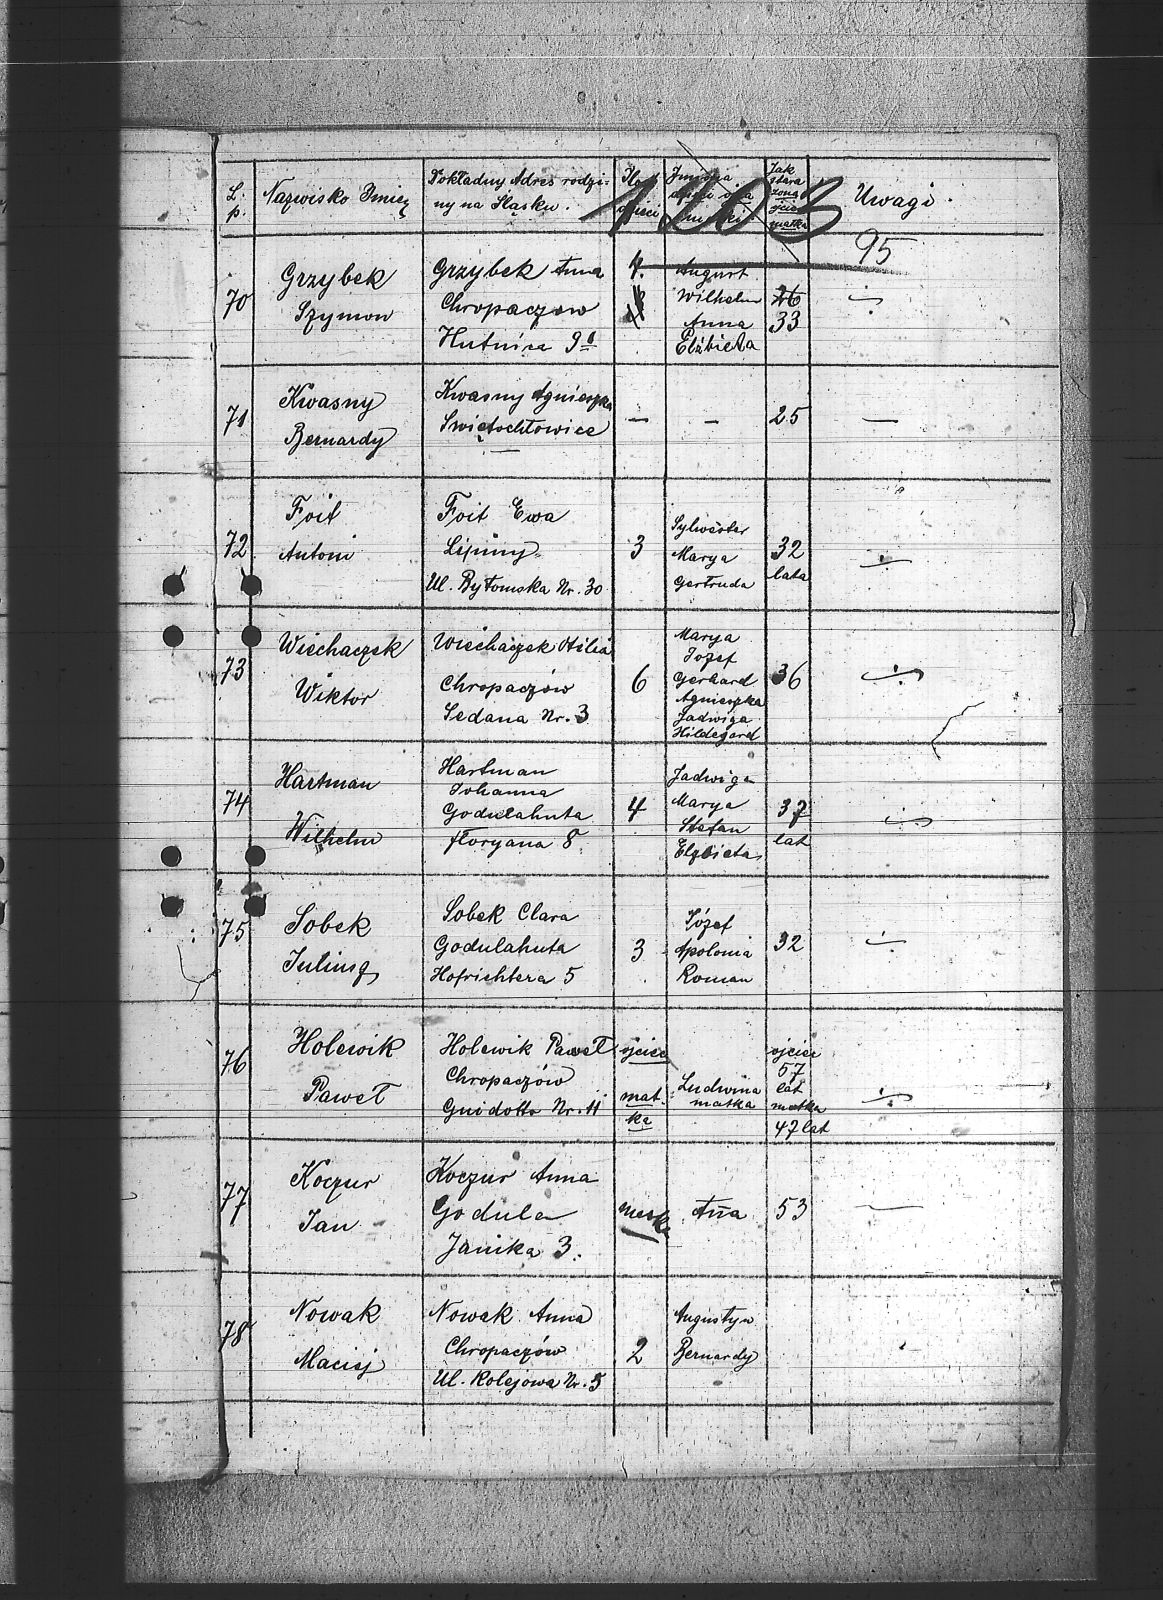 L. p.
Nazwisko Imię
Dokładny Adres rodzi-
ny na Śląsku.
Ilo
dzieci
Imiona
dzieci
Jak
stara
żona
ojciec
matka
Uwagi.
1203
95
70
Grzybek
Szymon
Grzybek Anna
Chropaczow
Hutnica 9
4.
August
Wilhelm
Anna
Elżbieta
33
÷
71
Kwasny
Bernardy
Kwasny Agnieszka
Świętochłowice
—
—
25
—
72
Foit
Antoni
Foit Ewa
Lipiny
Ul. Bytomska Nr. 30
3
Sylwester
Marya
Gertruda
32
lata
÷
73
Wiechaczek
Wiktor
Wiechaczek Otilia
Chropaczów
Sedana Nr. 3
6
Marya
Jozef
Gerhard
Agnieszka
Jadwiga
Hildegard
36
÷
74
Hartman
Wilhelm
Hartman
Johanna
Godulahuta
Floryana 8
4
Jadwiga
Marya
Stefan
Elzbieta
37
lat
÷
75
Sobek
Juliusz
Sobek Clara
Godulahuta
Hofrichtera 5
3
Józef
Apolonia
Roman
32
÷
76
Holewik
Paweł
Holewik Paweł
Chropaczów
Guidotto Nr. 11
ojciec
mat-
ka
Ludwina
matka
ojciec
57
lat
matka
47 lat
÷
77
Koczur
Jan
Koczur Anna
Godula
Janika 3.
matka
Ana
53
—
78
Nowak
Maciej
Nowak Anna
Chropaczów
Ul. Kolejowa Nr. 5
2
Augustyn
Bernardy